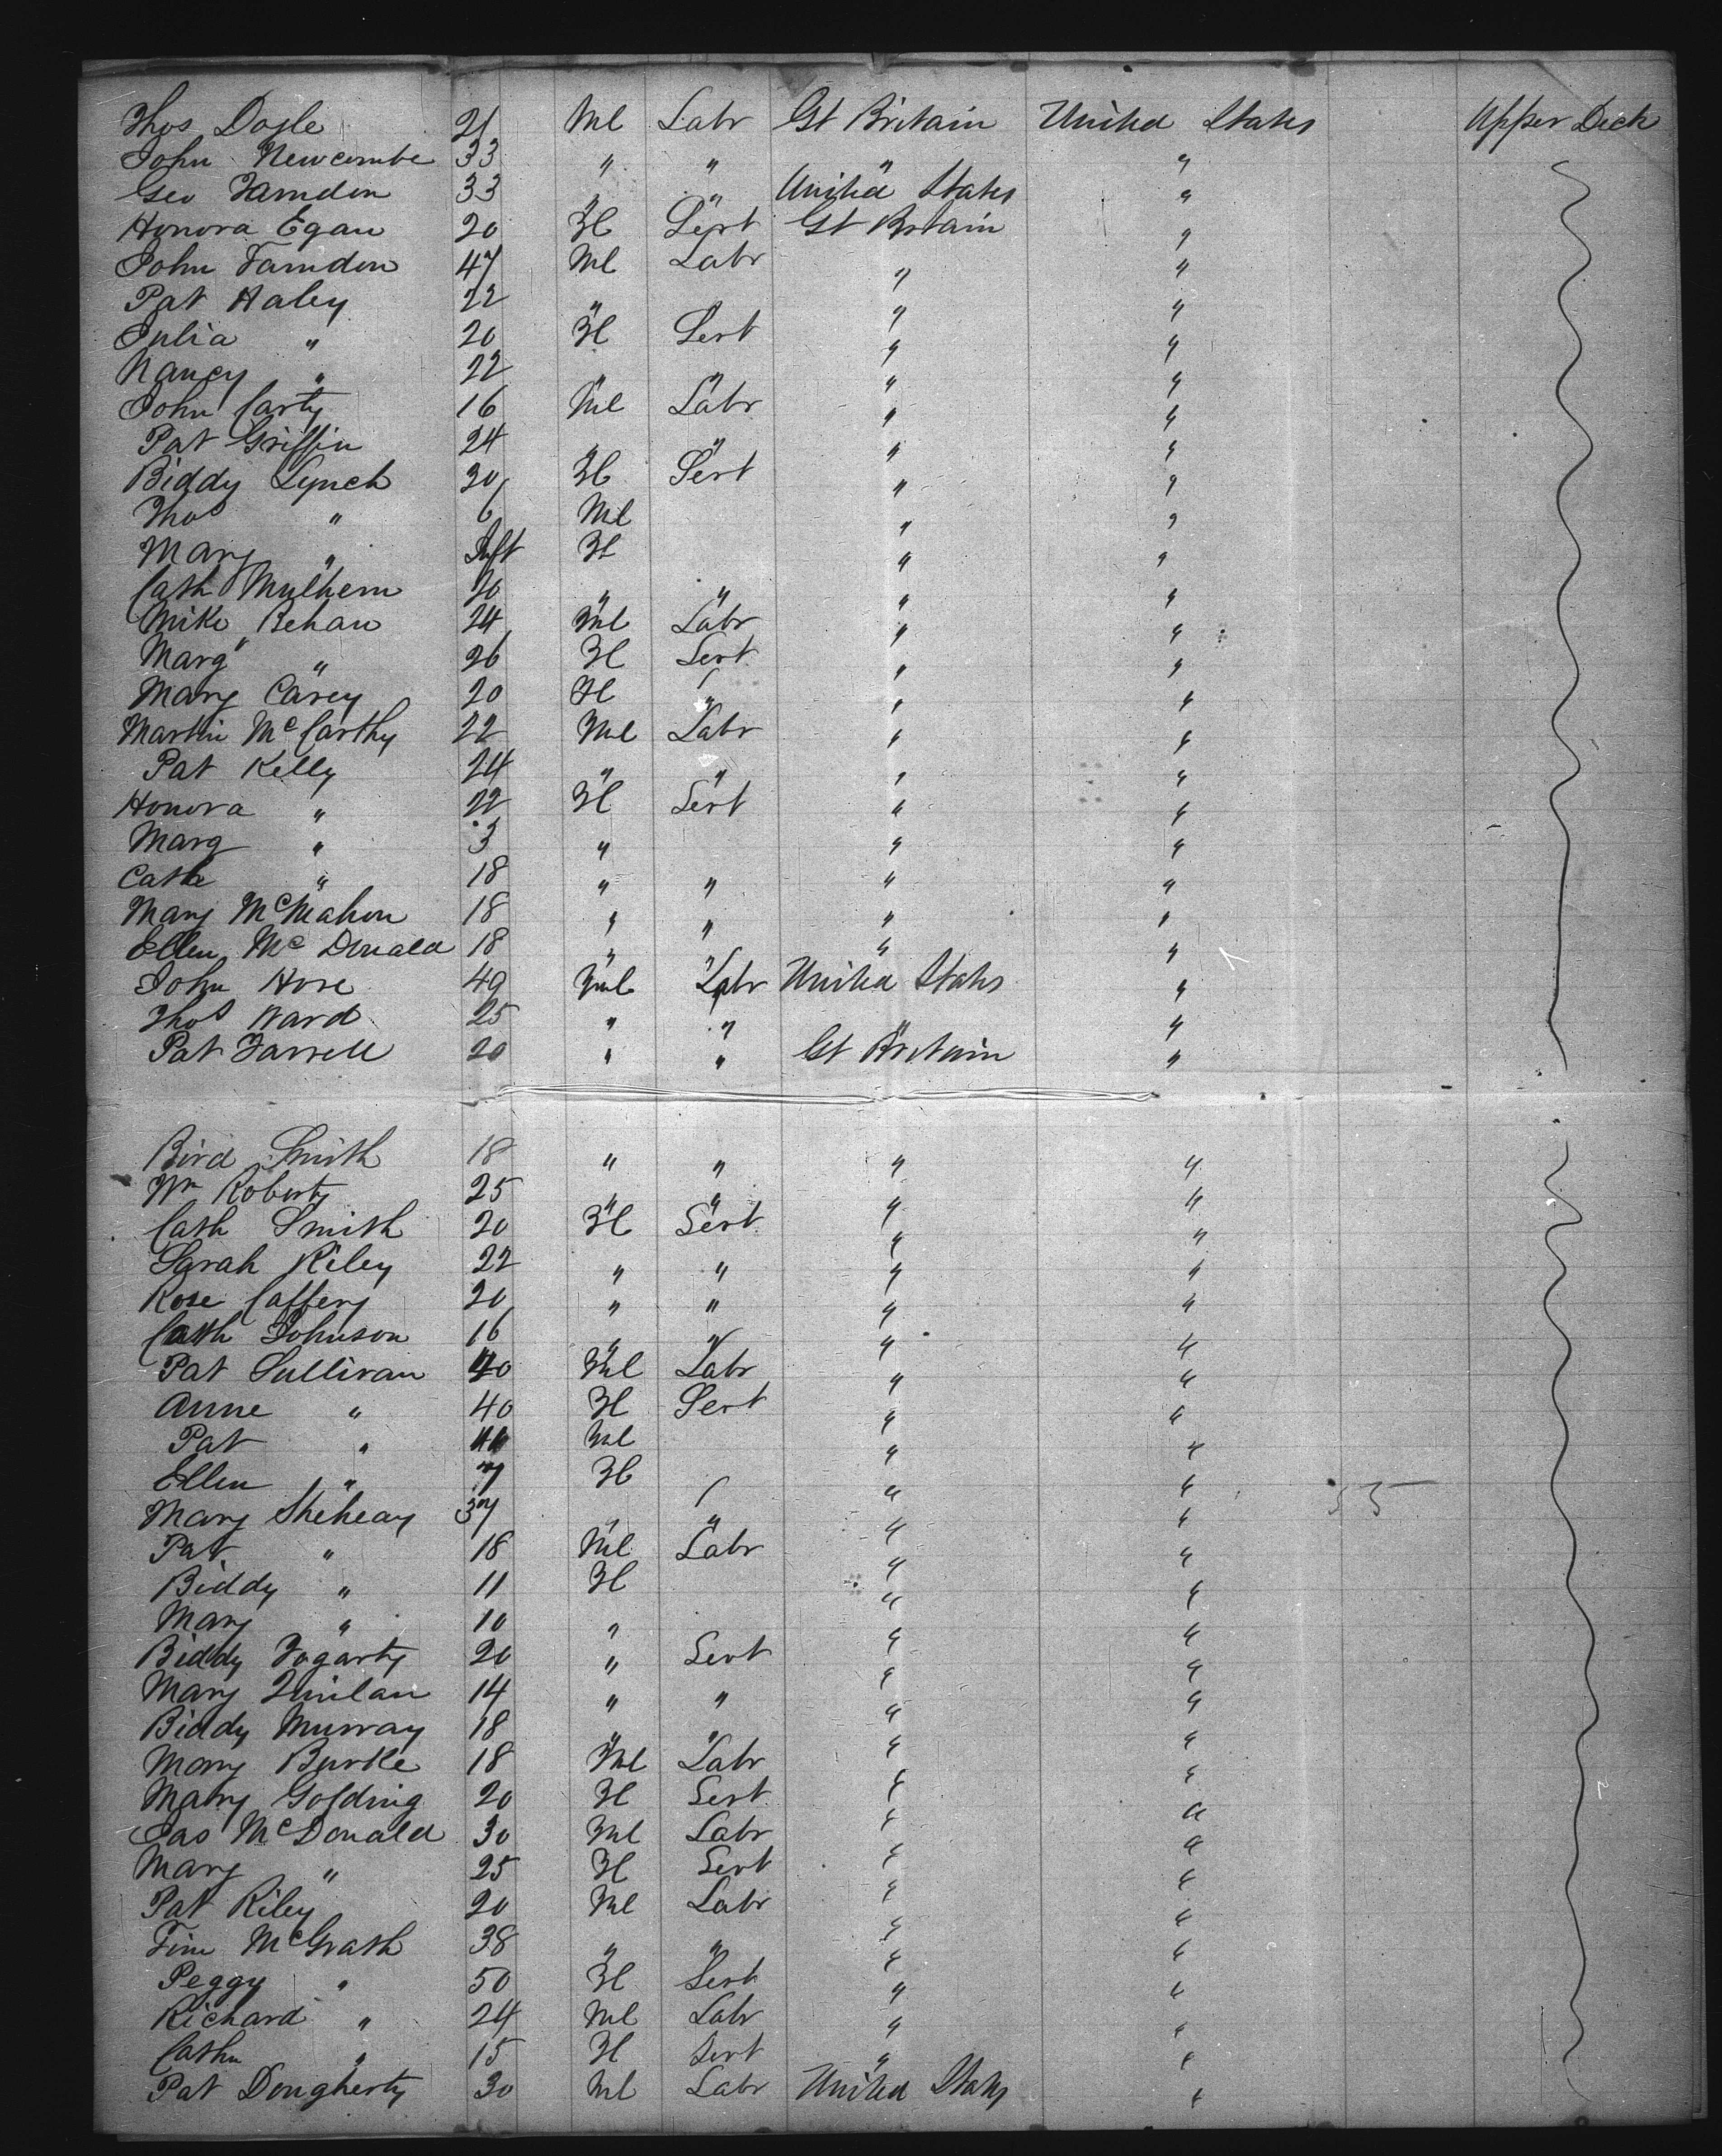 Thos Dogle 21 Ml Labr Gt Britain United States Upper Deck
John Newcombe 33 " " " "
Geo Farndon 33 " " United States "
Honora Egan 20 Fl Sert Gt Britain "
John Farndon 47 Ml Labr " "
Pat Haley 22 " " "
Julia " 20 Fl Sert " "
Nancy " 22 " " " "
John Carty 16 Ml Labr " "
Pat Griffin 24 " " " "
Biddy Lynch 30 Fl Sert " "
Thos " 6 Ml " "
Mary " Inft Fl " "
Cath Mulhern 20 " " " "
Mike Behan 24 Ml Labr " "
Marg " 26 Fl Sert " "
Mary Carey 20 Fl " " "
Martin McCarthy 22 Ml Labr " "
Pat Kelly 24 " " " "
Honora " 22 Fl Sert " "
Marg " 3 " " "
Cath " 18 " " " "
Mary McMahon 18 " " " "
Ellen McDonald 18 " " " "
John Hore 49 Ml Labr United States "
Thos Ward 25 " " " "
Pat Farrell 20 " " Gt Britain "
Bird Smith 18 " " " "
Wm Roberts 25 " " " "
Cath Smith 20 Fl Sert " "
Sarah Riley 22 " " " "
Rose Caffery 20 " " " "
Cath Johnson 16 " " " "
Pat Sullivan 40 Ml Labr " "
Anne " 40 Fl Sert " "
Pat " Ml " "
Ellen " 7 Fl " "
Mary Sheheay 37 " " " "
Pat " 18 Ml Labr " "
Biddy " 11 Fl " "
Mary " 10 " " "
Biddy Fogarty 20 " Sert " "
Mary Quinlan 14 " " " "
Biddy Murray 18 " " " "
Mary Burke 18 Ml Labr " "
Mary Golding 20 Fl Sert " "
Jas McDonald 30 Ml Labr " "
Mary " 25 Fl Sert " "
Pat Riley 20 Ml Labr " "
Tim McGrath 38 " " " "
Peggy " 50 Fl Sert " "
Richard " 24 Ml Labr " "
Cathn " 15 Fl Sert " "
Pat Dougherty 30 Ml Labr United States "